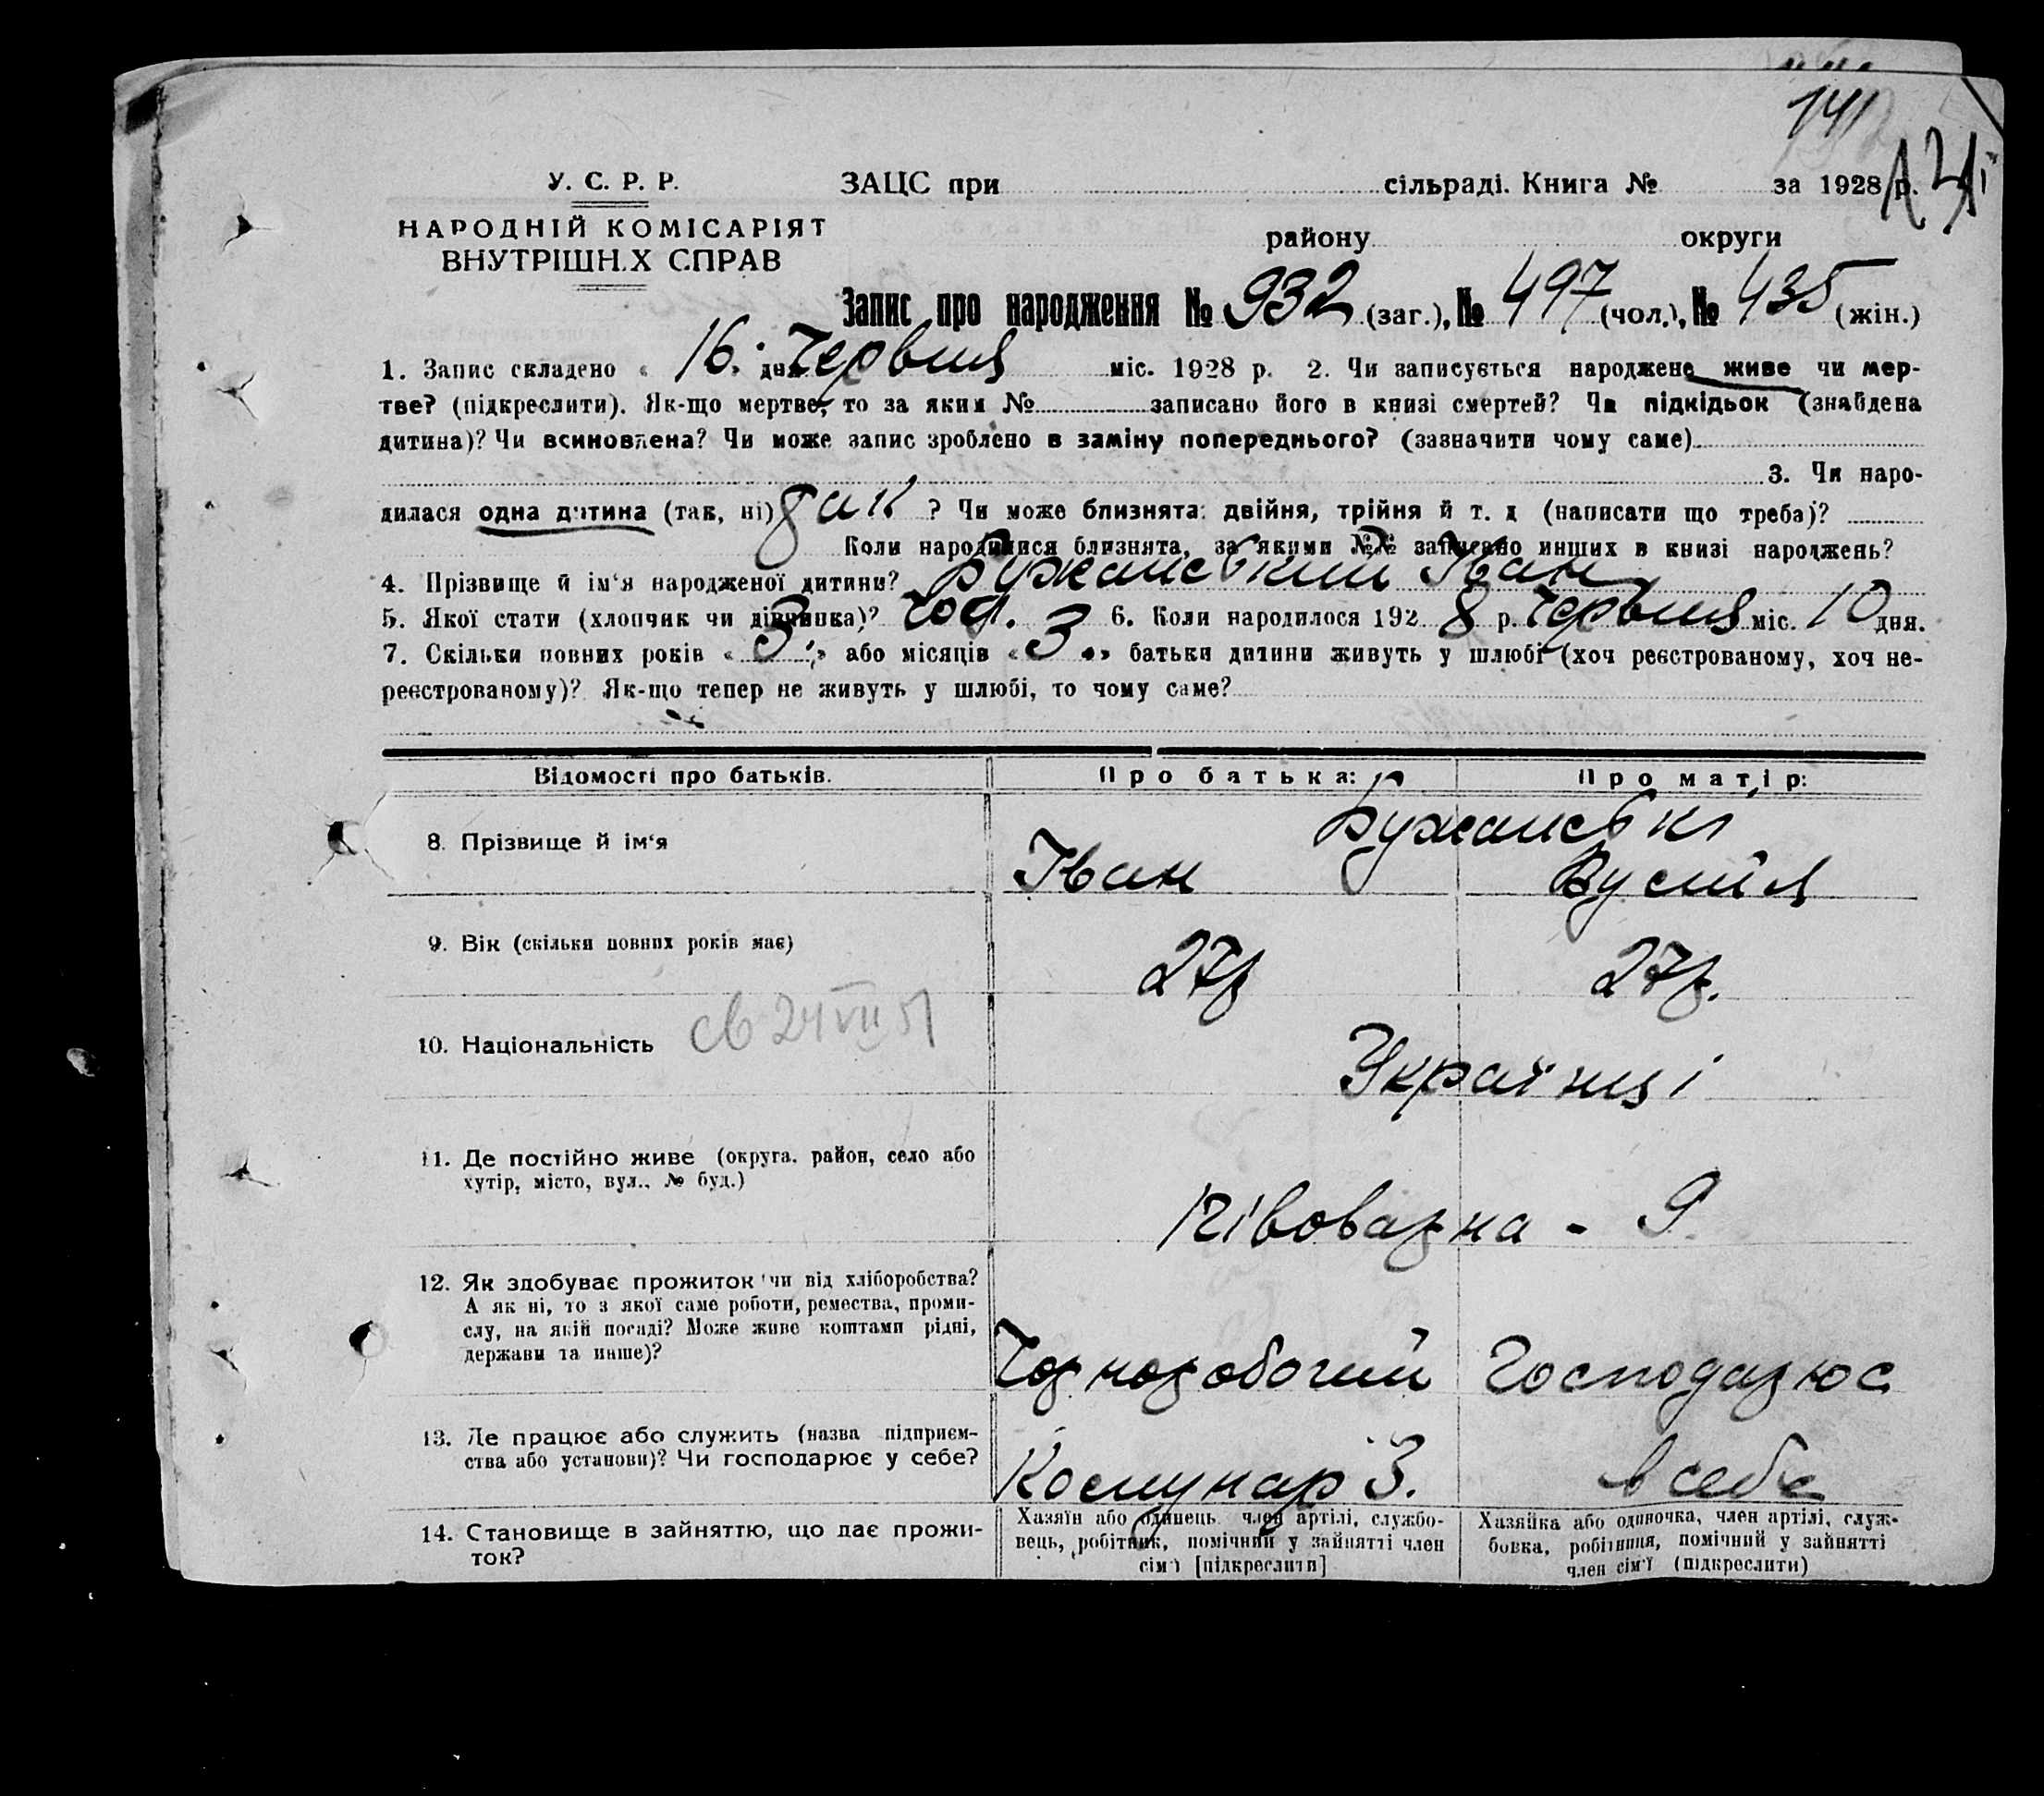 141
У. С. Р. Р.
ЗАЦС при сільраді. Книга № за 1928 р.
НАРОДНІЙ КОМІСАРІЯТ
ВНУТРІШН.Х СПРАВ
району округи
Запис про народження № 932 (заг.), № 497 (чол.), № 435 (жін.)
1. Запис складено « 16. дня Червня міс. 1928 р. 2. Чи записується народжене живе чи мер-
тве? (підкреслити). Як-що мертве, то за яким № записано його в книзі смертей? Чи підкідьок (знайдена
дитина)? Чи всиновлена? Чи може запис зроблено в заміну попереднього? (зазначити чому саме)
3. Чи наро-
дилася одна дитина (так, ні) так ? Чи може близнята: двійня, трійня й т. д (написати що треба)?
Коли народилися близнята, за якими №№ записано инших в книзі народжень?
4. Прізвище й ім‘я народженої дитини? Бужанський Іван
5. Якої стати (хлопчик чи дівчинка)? чол. 6. Коли народилося 192 8 р. Червня міс. 10 дня.
7. Скільки повних років « 3 » або місяців « 3 » батьки дитини живуть у шлюбі (хоч реєстрованому, хоч не-
реєстрованому)? Як-що тепер не живуть у шлюбі, то чому саме?
Відомості про батьків.
Про батька:
Про матір:
8. Прізвище й ім‘я
Бужанські
Іван
9. Вік (скільки повних років має)
27р
27р.
10. Національність
св 24 VII 51
Українці
11. Де постійно живе (округа. район, село або
хутір, місто, вул.. № буд.)
Півоварна - 9
12. Як здобуває прожиток чи від хліборобства?
А як ні, то з якої саме роботи, ремества, проми-
слу, на якій посаді? Може живе коштами рідні,
держави та инше)?
Чорноробочий
Господарює
13. Де працює або служить (назва підприєм-
ства або установи)? Чи господарює у себе?
Комунар З.
в себе
14. Становище в зайняттю, що дає прожи-
ток?
Хазяїн або одинець член артілі, службо-
вець, робітник, помічний у зайнятті член
сім‘ї [підкреслити]
Хазяйка або одиночка, член артілі, служ-
бовка, робітниця, помічний у зайнятті
член сім‘ї (підкреслити)